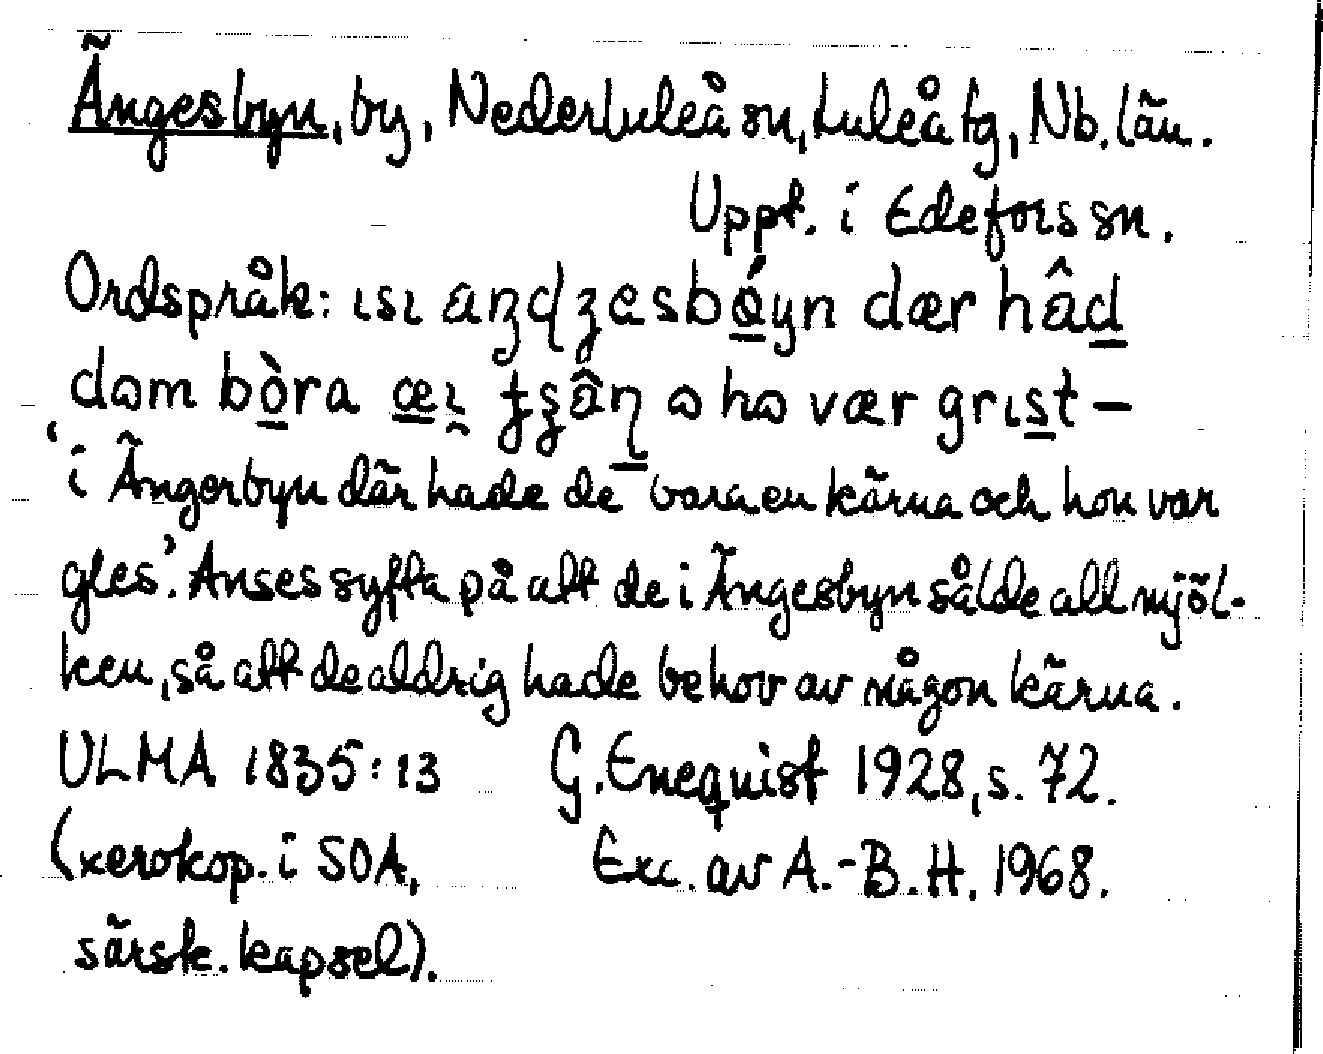 Ängesbyn, by, Nederluleå sn, Luleå tg, Nb. län.
Uppt. i Edefors sn.
Ordspråk: ısı dær hâd
dɷm bòra æı ɷ hɷ vær grıst –
‘i Ängesbyn där hade de bara en kärna och hon var
gles’. Anses syfta på att de i Ängesbyn sålde all mjöl-
ken, så att de aldrig hade behov av någon kärna.
ULMA 1835:13 G. Enequist 1928, s. 72.
(xerokop. i SOA, Exc. av A.-B. H. 1968.
särsk. kapsel).